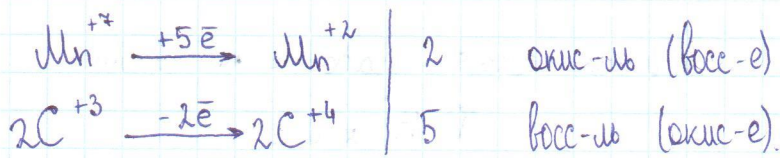 Mn⁺⁷ +5ē → Mn⁺² | 2 окис-ль (восс-е)
2C⁺³ -2ē → 2C⁺⁴ | 5 восс-ль (окис-е).